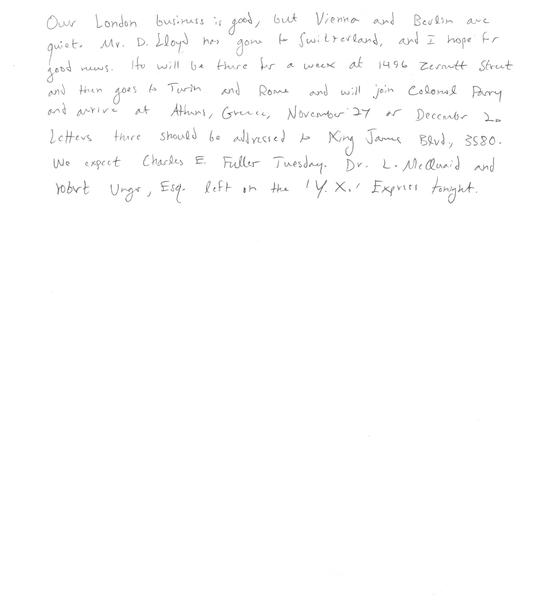 Our London business is good, but Vienna and Berlin are
quiet. Mr. D. Lloyd has gone to Switzerland, and I hope for
good news. He will be there for a week at 1496 Zermatt Street
and then goes to Turin and Rome and will join Colonel Parry
and arrive at Athens, Greece, November 27 or December 2.
Letters there should be addressed to King James Blvd, 3580.
We expect Charles E. Fuller Tuesday. Dr. L. McQuaid and
robert Unger, Esq. left on the 'Y. X.' Express tonight.